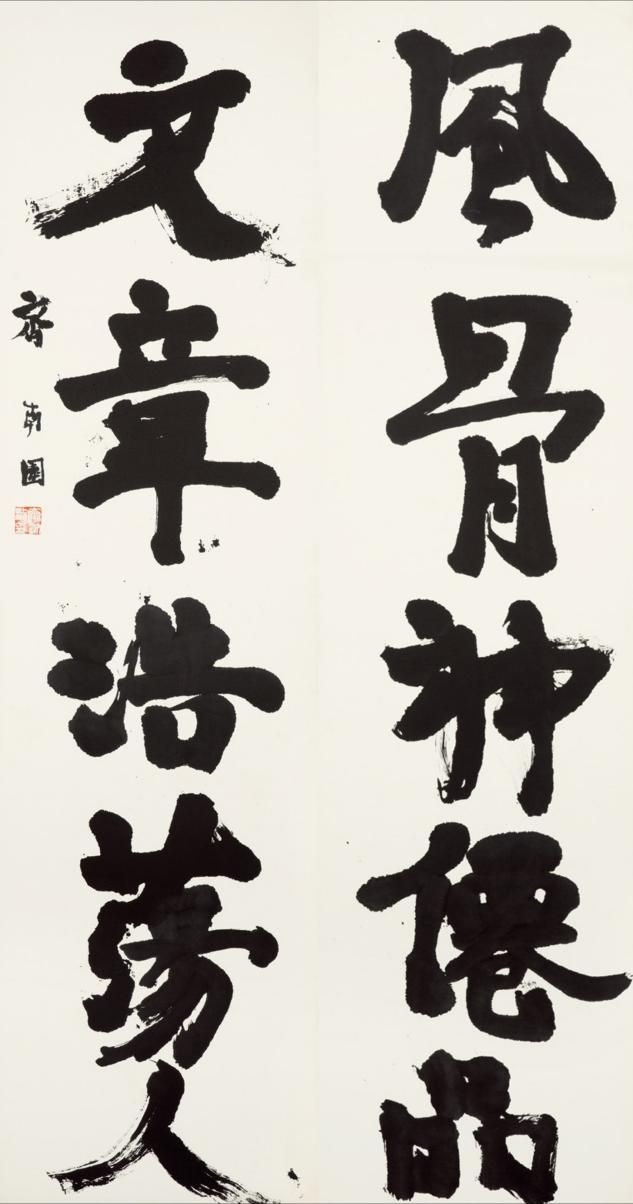 風骨神僊品
文章浩蕩人
齊南園